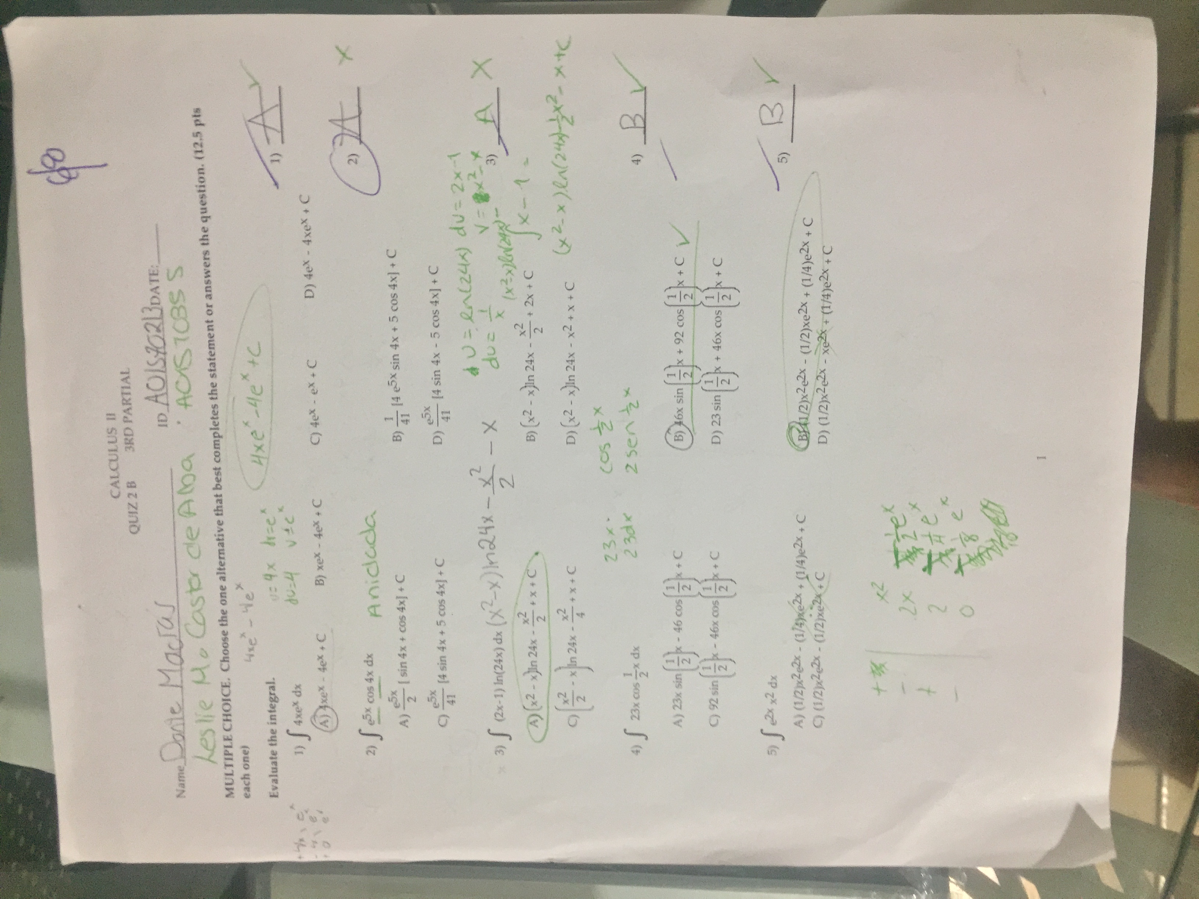 CALCULUS II
QUIZ 2 B 3RD PARTIAL
Name Dante Macías ID A01570213 DATE:
Leslie Ma Castor de Alba
MULTIPLE CHOICE. Choose the one alternative that best completes the statement or answers the question. (12.5 pts
each one)
4xeˣ - 4eˣ
u = 4x
du = 4
v = eˣ
4xeˣ - 4eˣ + C
Evaluate the integral.
1) ∫ 4xeˣ dx
1) A ✓
A) 4xeˣ - 4eˣ + C B) xeˣ - 4eˣ + C C) 4eˣ - eˣ + C D) 4eˣ - 4xeˣ + C
2) ∫ e5x cos 4x dx Anidada
2) A x
A) e5x/2 [ sin 4x + cos 4x] + C B) 1/41 [4 e5x sin 4x + 5 cos 4x] + C
C) e5x/41 [4 sin 4x + 5 cos 4x] + C D) e5x/41 [4 sin 4x - 5 cos 4x] + C
U = ln(24x) dU = 2x-1
du = 1/x
3) ∫ (2x-1) ln(24x) dx (x²-x)ln24x - x²/2 - x
3) A X
(x²-x)ln(24x) - ∫ x - 1 =
A) (x2 - x)ln 24x - x2/2 + x + C B) (x2 - x)ln 24x - x2/2 + 2x + C
C) (x2/2 - x)ln 24x - x2/4 + x + C D) (x2 - x)ln 24x - x2 + x + C
(x²-x)ln(24x) - ½x² - x + C
23x · cos ½x
23dx 2sen ½x
4) ∫ 23x cos 1/2 x dx
4) B ✓
A) 23x sin (1/2)x - 46 cos (1/2)x + C B) 46x sin (1/2)x + 92 cos (1/2)x + C ✓
C) 92 sin (1/2)x - 46x cos (1/2)x + C D) 23 sin (1/2)x + 46x cos (1/2)x + C
5) ∫ e2x x2 dx
5) B ✓
A) (1/2)x2e2x - (1/4)xe2x + (1/4)e2x + C B) (1/2)x2e2x - (1/2)xe2x + (1/4)e2x + C
C) (1/2)x2e2x - (1/2)xe2x + C D) (1/2)x2e2x - xe2x + (1/4)e2x + C
+ x²
- 2x
+ 2
- 0
1